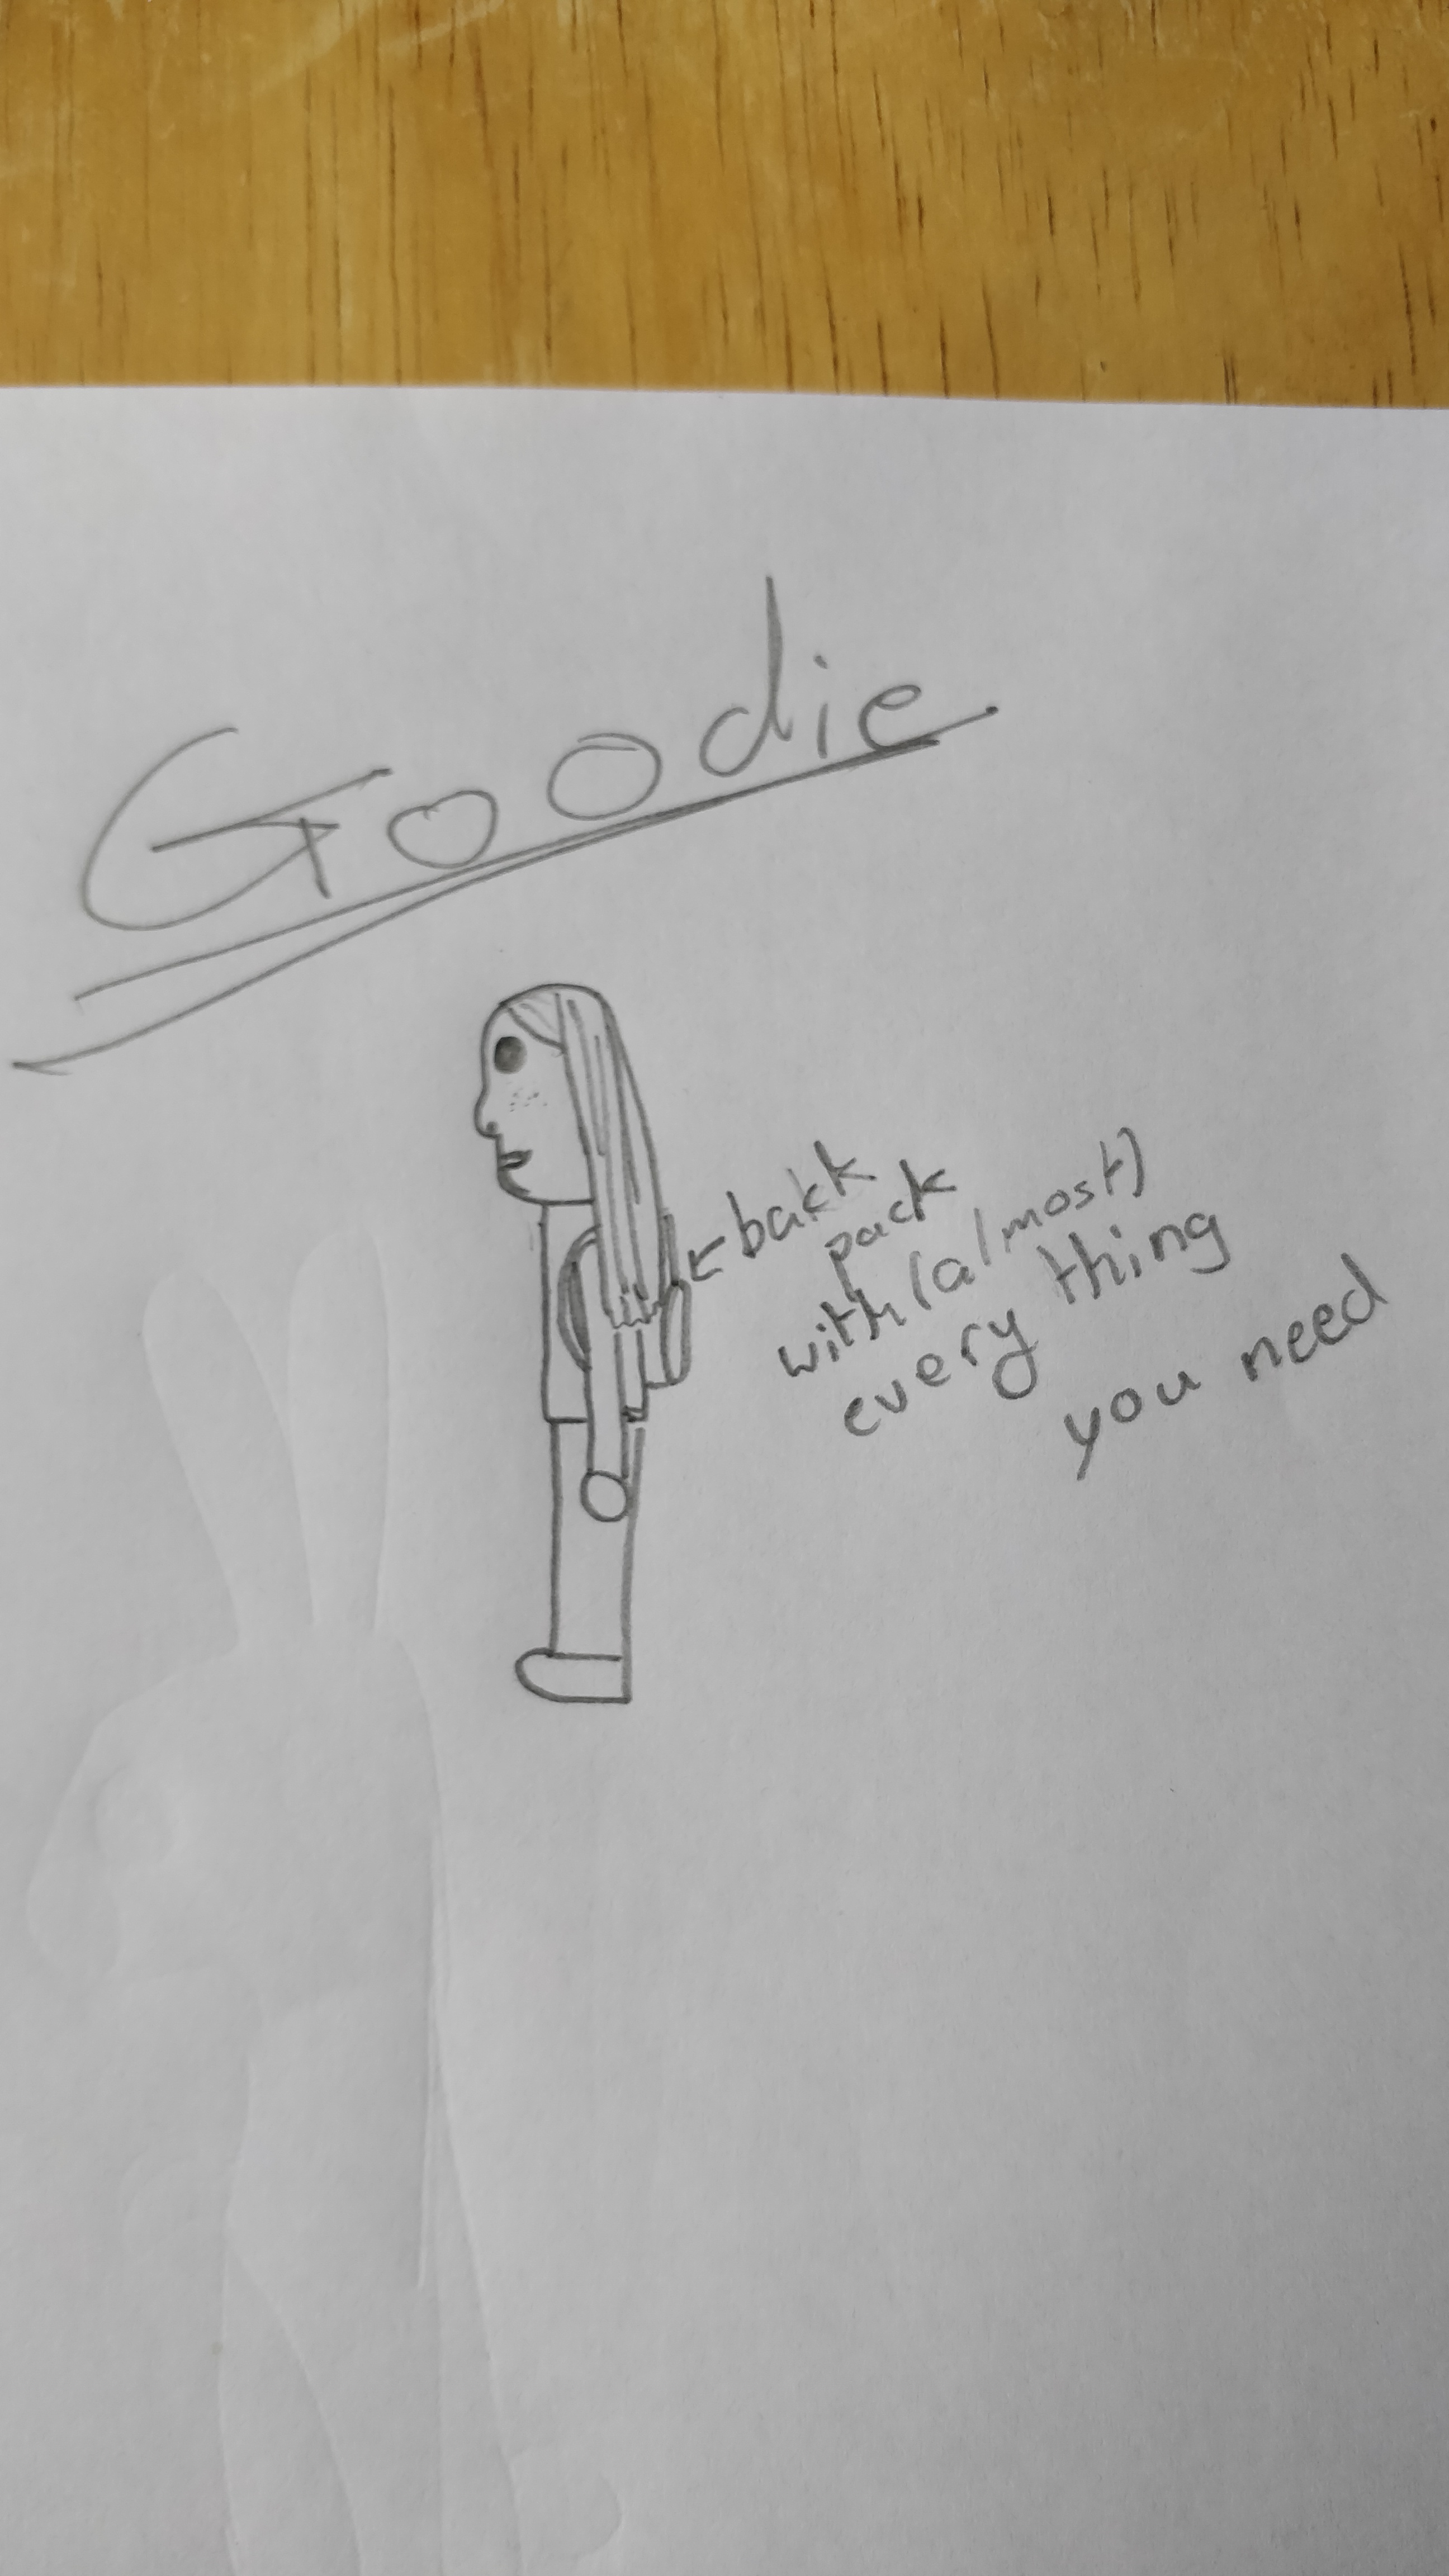 Goodie
bakk
pack
with (almost)
every thing
you need